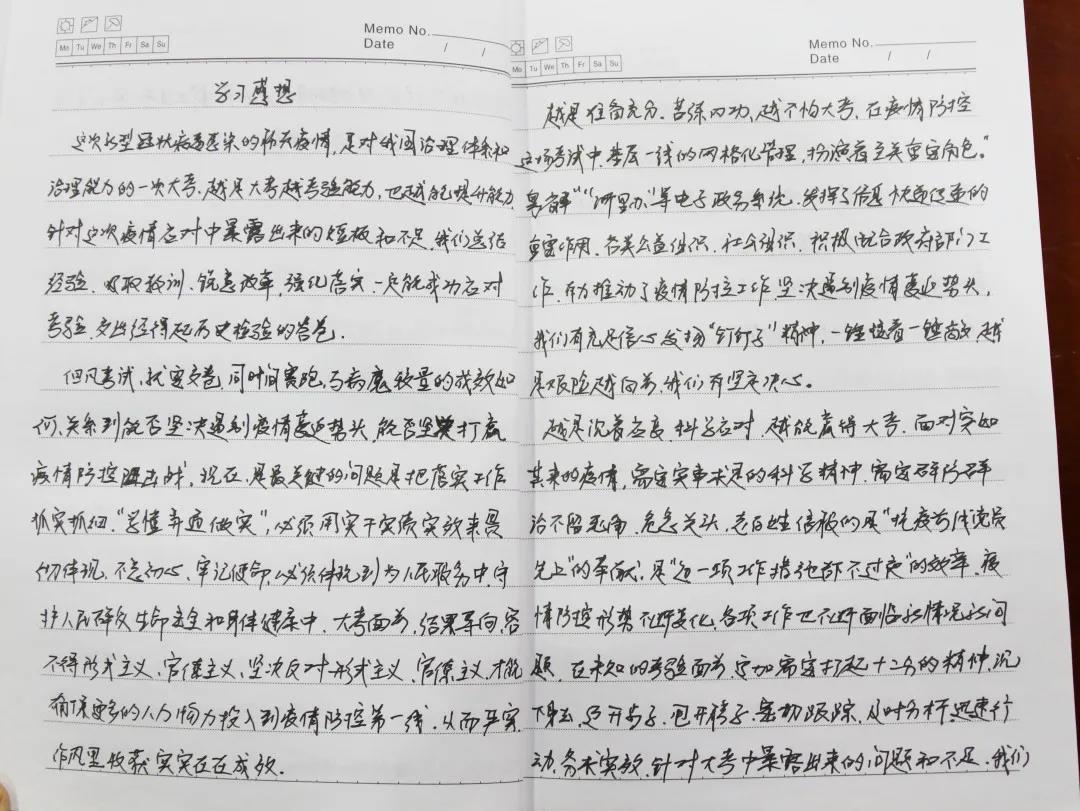 Memo No.
Date / /
Mo Tu We Th Fr Sa Su
学习感想
这次新型冠状病毒感染的肺炎疫情，是对我国治理体系和
治理能力的一次大考，越是大考越考验能力，也越能提升能力
针对这次疫情应对中暴露出来的短板和不足，我们总结
经验、吸取教训、锐意改革，强化落实一定能成功应对
考验，交出经得起历史检验的答卷。
但凡考试，就要交卷，同时间赛跑，与病魔较量的成效如
何，关系到能否坚决遏制疫情蔓延势头，能否坚决打赢
疫情防控阻击战，现在，是最关键的问题是把落实工作
抓实抓细，"善慎弃适做实"，必须用实干实绩实效来具
体现，不忘初心，牢记使命必须体现到为人民服务中，守
护人民群众生命安全和身体健康中，大考面前，结果导向，容
不得形式主义、官僚主义，坚决反对形式主义、官僚主义，才能
确保更多的人力物力投入到疫情防控第一线，从而严实
作风里收获实实在在成效。
Memo No.
Date / /
Mo Tu We Th Fr Sa Su
越是准备充分、苦练内功，越不怕大考，在疫情防控
这场考试中基层一线的网格化管理，扮演着至关重要角色。"
粤省事""浙里办"等电子政务系统，发挥了信息快速便捷的
重要作用，各类公益组织、社会组织，积极配合政府部门工
作，有力推动了疫情防控工作坚决遏制疫情蔓延势头，
我们有充足信心发扬"钉钉子"精神，一锤接着一锤敲，越
是艰险越向前，我们有坚定决心。
越是沉着应变，科学应对，越能赢得大考，面对突如
其来的疫情，需要实事求是的科学精神，需要群防群
治不留死角，危急关头，老百姓信服的是"抗疫前线党员
先上"的奉献，是"这一项工作措施都不过夜"的效率，疫
情防控形势不断变化，各项工作也不断面临新情况新问
题，在未知的考验面前，更加需要打起十二分的精神，沉
下身去，迈开步子，密切跟踪，及时分析迅速行
动，务求实效，针对大考中暴露出来的问题和不足，我们